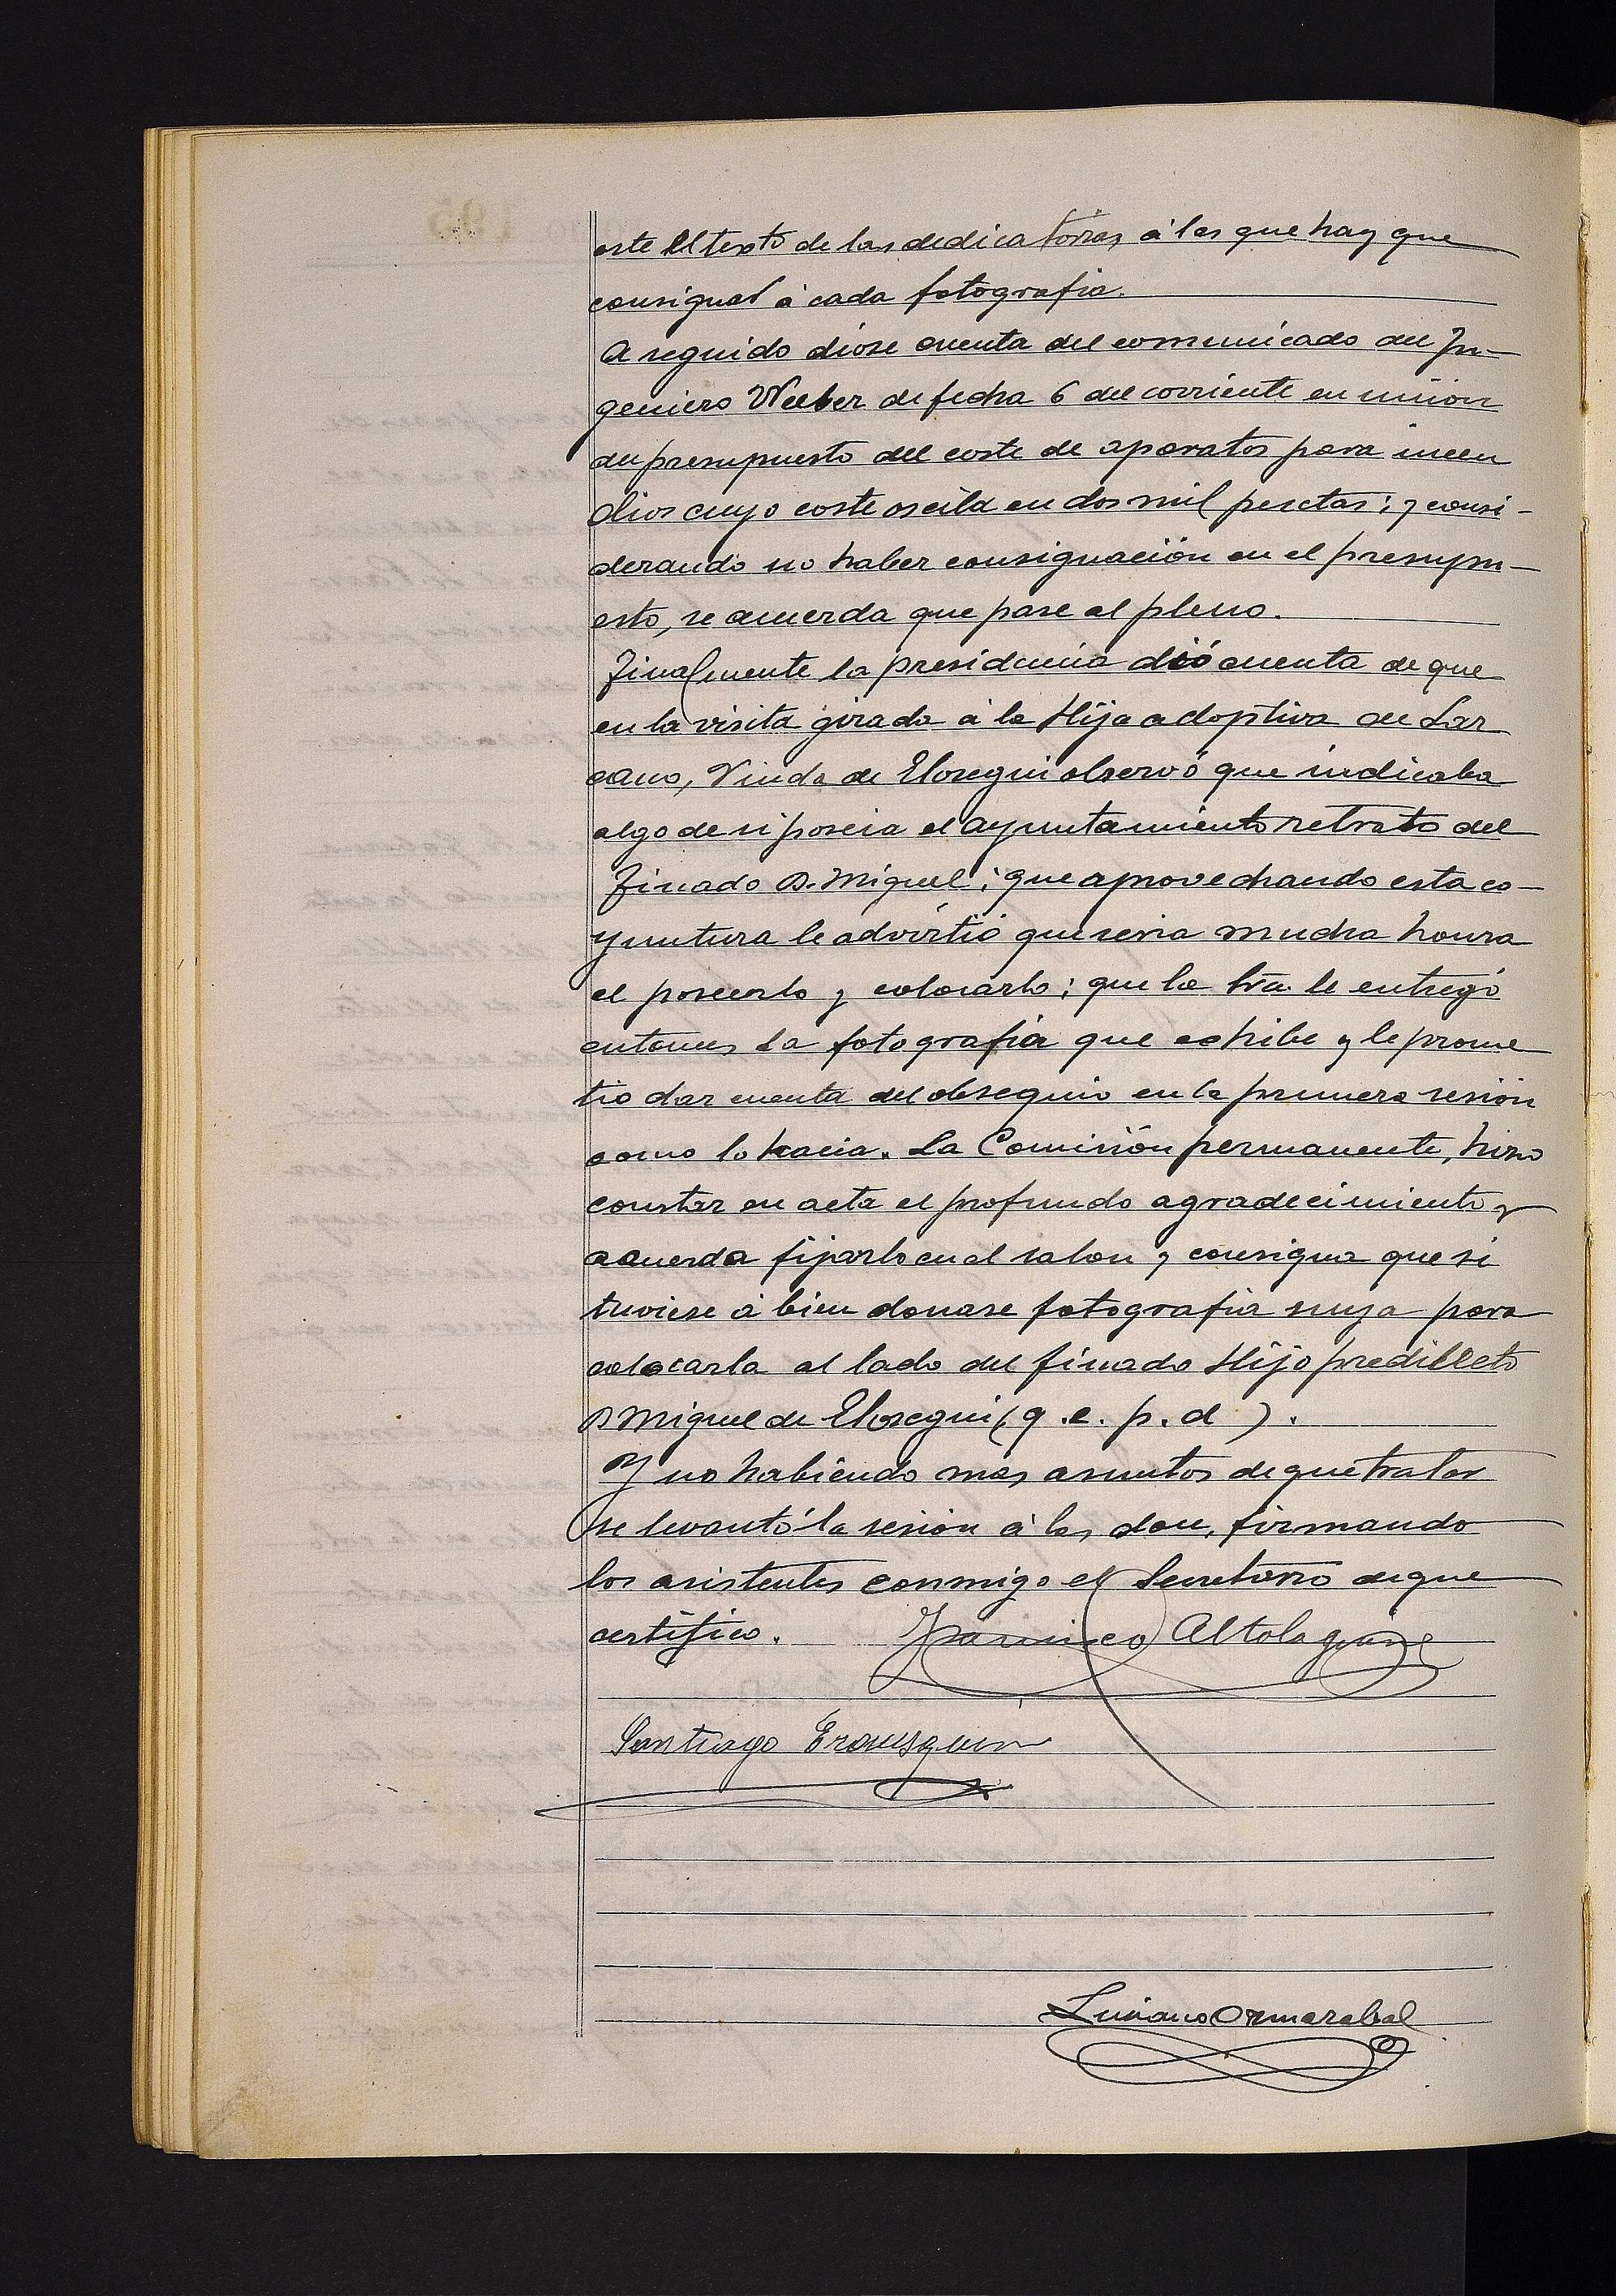 este el texto de las dedicatorias á las que hay que
consignar á cada fotografia.
A seguido dióse cuenta del comunicado del In-
geniero Weeber de fecha 6 del corriente en unión
del presupuesto del coste de aparatos para incen
dios cuyo coste oscila en dos mil pesetas; y consi-
derando no haber consignación en el presupu-
esto, se acuerda que pase al pleno.
Finalmente la presidencia dió cuenta de que
en la visita girada á la Hija adoptiva de Laz
cano, Viuda de Elosegui observó que indicaba
algo de si poseia el ayuntamiento retrato del
finado D. Miguel; que aprovechando esta co-
yuntura le advirtió que seria mucha honra
el poseerlo y colocarlo; que la Sra. le entregó
entonces la fotografia que exhibe y le prome
tio dar cuenta del obsequio en la primera sesión
como lo hacia. La Comisión permanente, hizo
constar en acta el profundo agradecimiento y
acuerda fijarlo en el salon y consigna que si
tuviese á bien donase fotografia suya para
colocarla al lado del finado Hijo predilecto
D Miguel de Elosegui (q.e.p.d).
Y no habiendo mas asuntos de que tratar
se levantó la sesión á las doce, firmando
los asistentes conmigo el Secretario de que
certifico. Francisco Altolaguirre
Santiago Erausquin
Luciano Ormazabal